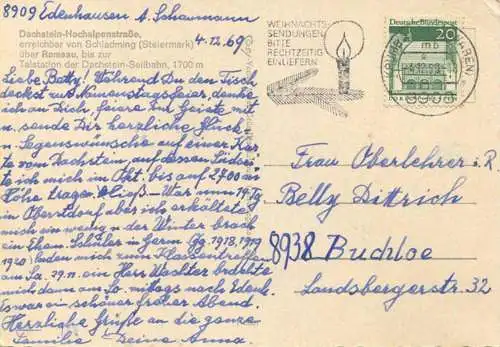 8909 Edenhausen A. Schaumann
4.12.69
Dachstein-Hochalpenstraße,
erreichbar von Schladming (Steiermark)
über Ramsau, bis zur
Talstation der Dachstein-Seilbahn, 1700 m
WEIHNACHTS-
SENDUNGEN
BITTE
RECHTZEITIG
EINLIEFERN
Deutsche Bundespost
20
Liebe Betty! Während Du den Tisch
deckst z. Namenstagsfeier, denke
ich an Dich, feiere im Geiste mit
u. sende Dir herzliche Glück-
u. Segenswünsche auf einer Kar-
te vom Dachstein, auf dessen
ich mich im Okt. bis auf 2700 m
Höhe tragen ließ. War nun 14 Tg.
in Oberstdorf aber ich erkältete
mich ein wenig u. der Winter brach
ein. Ehem. Schüler in Germ. Gg. 1918, 1919
1920 luden mich zum Klassentreffen
am Sa. 29.11. ein Herr Wachter brachte
mich dann am So. mittags nach Edenh.
Es war ein schöner froher Abend.
Herzliche Grüße an die ganze
Familie Deine Anna.
Frau Oberlehrer i. R.
Betty Dittrich
8938 Buchloe
Landsbergerstr. 32